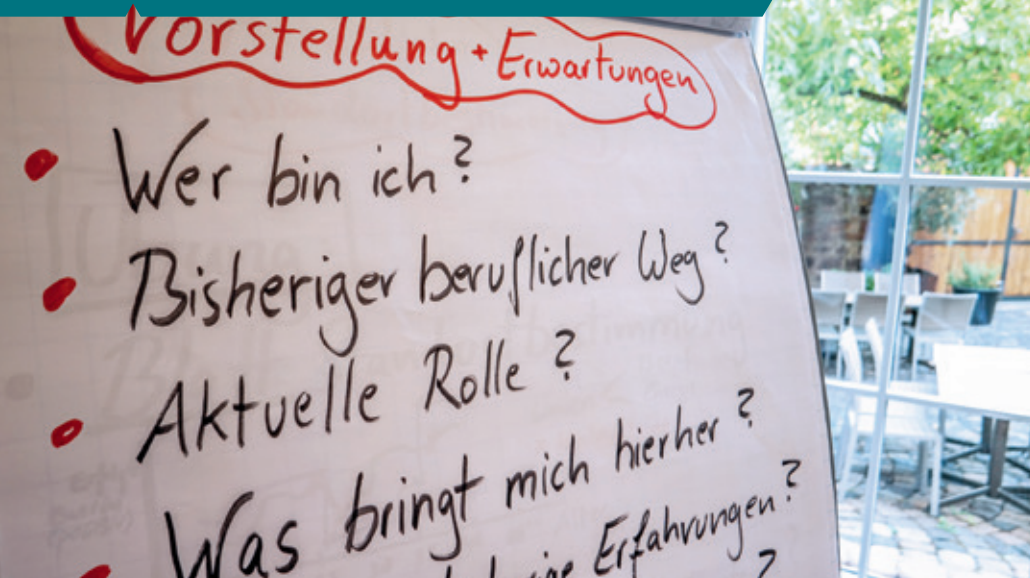 Vorstellung + Erwartungen
Wer bin ich?
Bisheriger beruflicher Weg?
Aktuelle Rolle?
Was bringt mich hierher?
Erfahrungen?
?